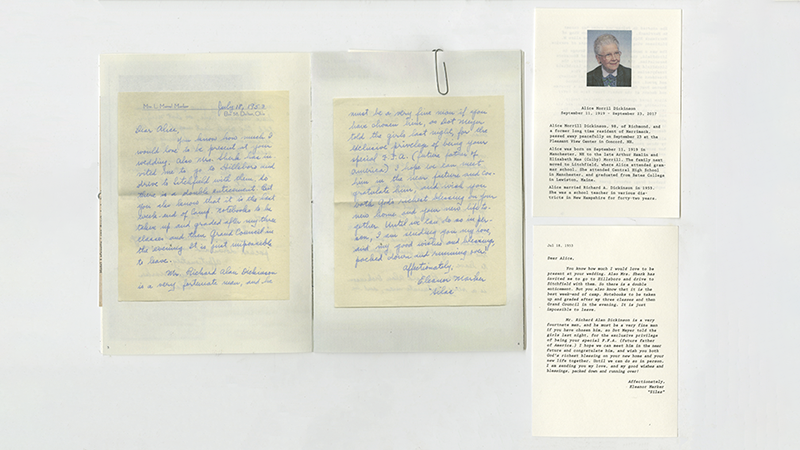 Dear Alice,
You know how much I
would love to be present at your
wedding. Also Mrs. Shank has in-
vited us to go to Hillsboro and
drive to Litchfield with them, so
there is a double enticement. But
you also know that it is the best
week-end of Camp. Notebooks to be
taken up and graded after my three
classes and then Grand Council in
the evening. It is just impossible
to leave.
Mr. Richard Alan Dickinson
is a very fortunate man, and he
must be a very fine man if you
have chosen him, so Dot Meyer
told the girls last night, for the
exclusive privilege of being your
special F.F.A. (future father of
America) I hope we can meet
him in the near future and con-
gratulate him, and wish you
both God's richest blessing on your
new home and your new life to-
gether. Until we can do so in per-
son, I am sending you my love,
and my good wishes and blessings,
packed down and running over!
Affectionately,
Eleanor Marker
Alice Morril Dickinson
September 11, 1918 - September 23, 2017
Alice Morrill Dickinson, 98, of Richmond, and
a former long time resident of Merrimack,
passed away peacefully on September 13 at the
Pleasant View Center in Concord, NH.
Alice was born on September 11, 1918 in
Manchester, NH to the late Arthur Hamlin and
Elizabeth Mae (Colby) Morrill. The family next
moved to Litchfield, where Alice attended gram-
mar school. She attended Central High School
in Manchester, and graduated from Bates College
in Lewiston, Maine.
Alice married Richard A. Dickinson in
She was a school teacher in various dis-
tricts in New Hampshire for forty-two years.
Jul 18,
Dear Alice,
You know how much I would love to be
present at your wedding. Also Mrs. Shank has
invited us to go to Hillsboro and drive to
Litchfield with them. So there is a double
enticement. But you also know that it is the
best week-end of camp. Notebooks to be taken
up and graded after my three classes and then
Grand Council in the evening. It is just
impossible to leave.
Mr. Richard Alan Dickinson is a very
fourtnate man, and he must be a very fine man
if you have chosen him, so Dot Meyer told the
girls last night, for the exclusive privilege
of being your special F.F.A. (future father
of America.) I hope we can meet him in the near
future and congratulate him, and wish you both
God's richest blessing on your new home and your
new life together. Until we can do so in person,
I am sending you my love, and my good wishes and
blessings, packed down and running over!
Affectionately,
Eleanor Marker